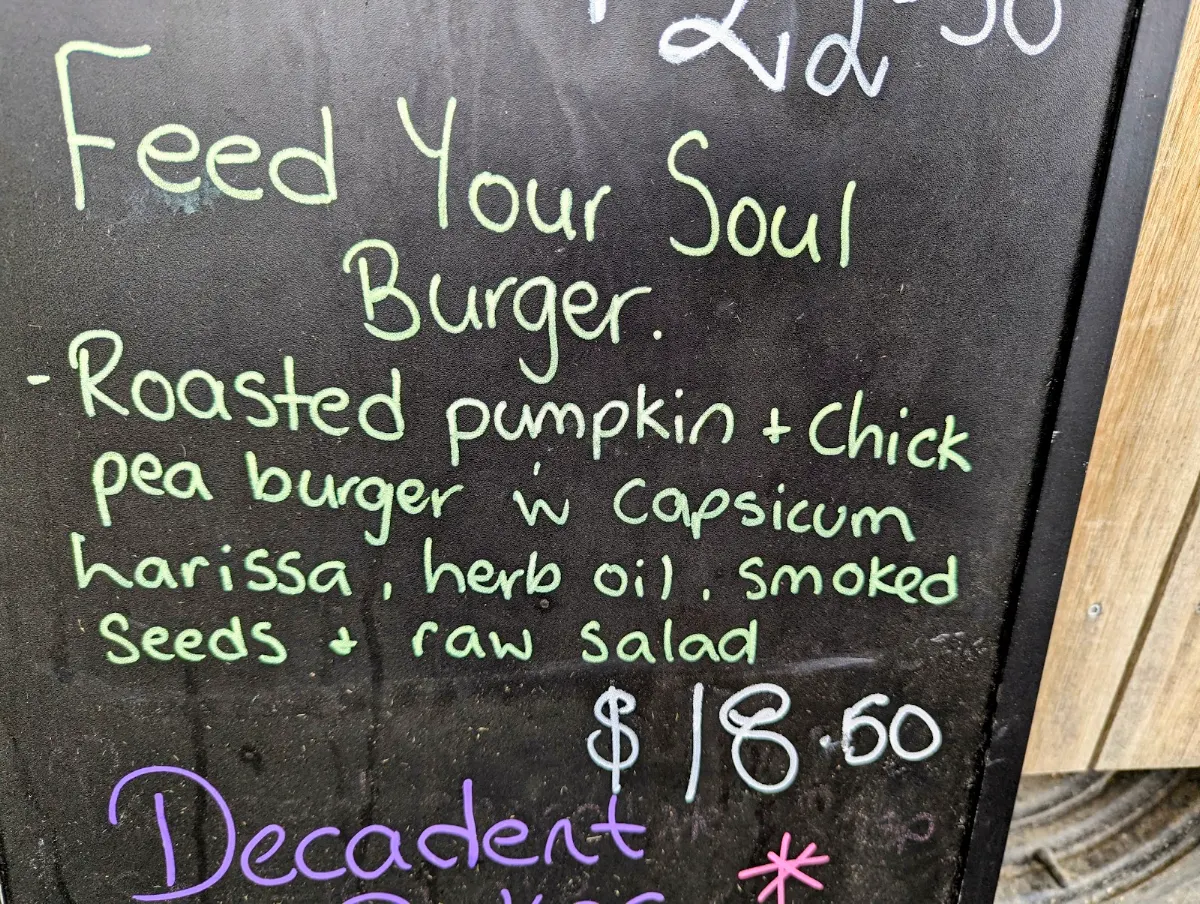 22.50
Feed Your Soul
Burger.
- Roasted pumpkin + Chick
pea burger w capsicum
harissa, herb oil, smoked
seeds + raw salad
$18.50
Decadent
*